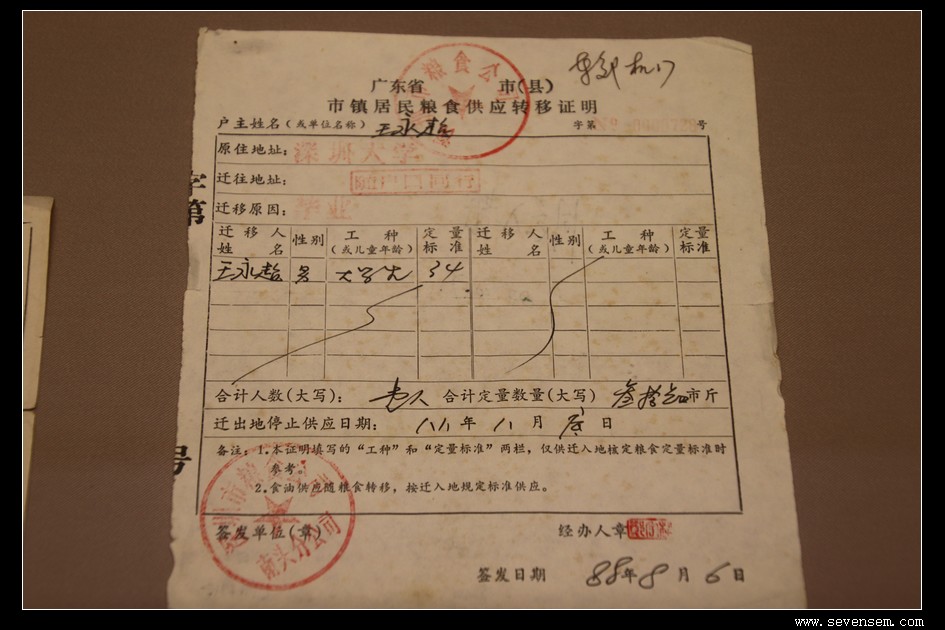 粮食公
广东省 市(县)
市镇居民粮食供应转移证明
户主姓名(或单位名称) 王永超 字第 号
原住地址: 深圳大学
迁往地址:
迁移原因: 毕业
迁移人姓名 性别 工种(或儿童年龄) 定量标准 迁移人姓名 性别 工种(或儿童年龄) 定量标准
王永超 男 大学生 34
合计人数(大写): 壹人 合计定量数量(大写) 叁拾肆市斤
迁出地停止供应日期: 八八年 八月 底日
备注:1.本证明填写的“工种”和“定量标准”两栏,仅供迁入地核定粮食定量标准时
参考。
2.食油供应随粮食转移,按迁入地规定标准供应。
签发单位(章)
南头分公司
经办人章
签发日期 88年8月6日
字第
号
www.sevensem.com